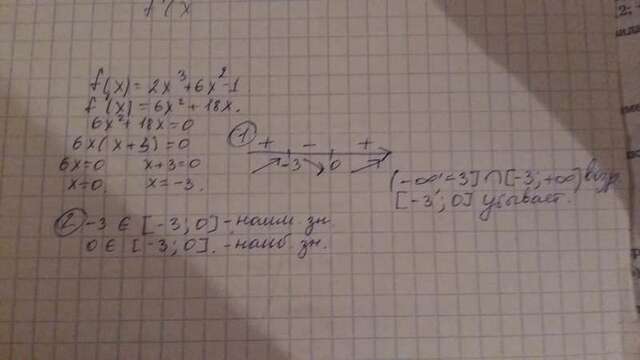 f(x) = 2x³+6x²-1
f'(x) = 6x²+18x.
6x²+18x=0
6x(x+3)=0
6x=0 x+3=0
x=0, x=-3.
① + - +
-3 0
(-∞;-3] ∩ [-3;+∞) возр.
[-3;0] убывает.
② -3 ∈ [-3;0] - наим. зн.
0 ∈ [-3;0]. - наиб. зн.